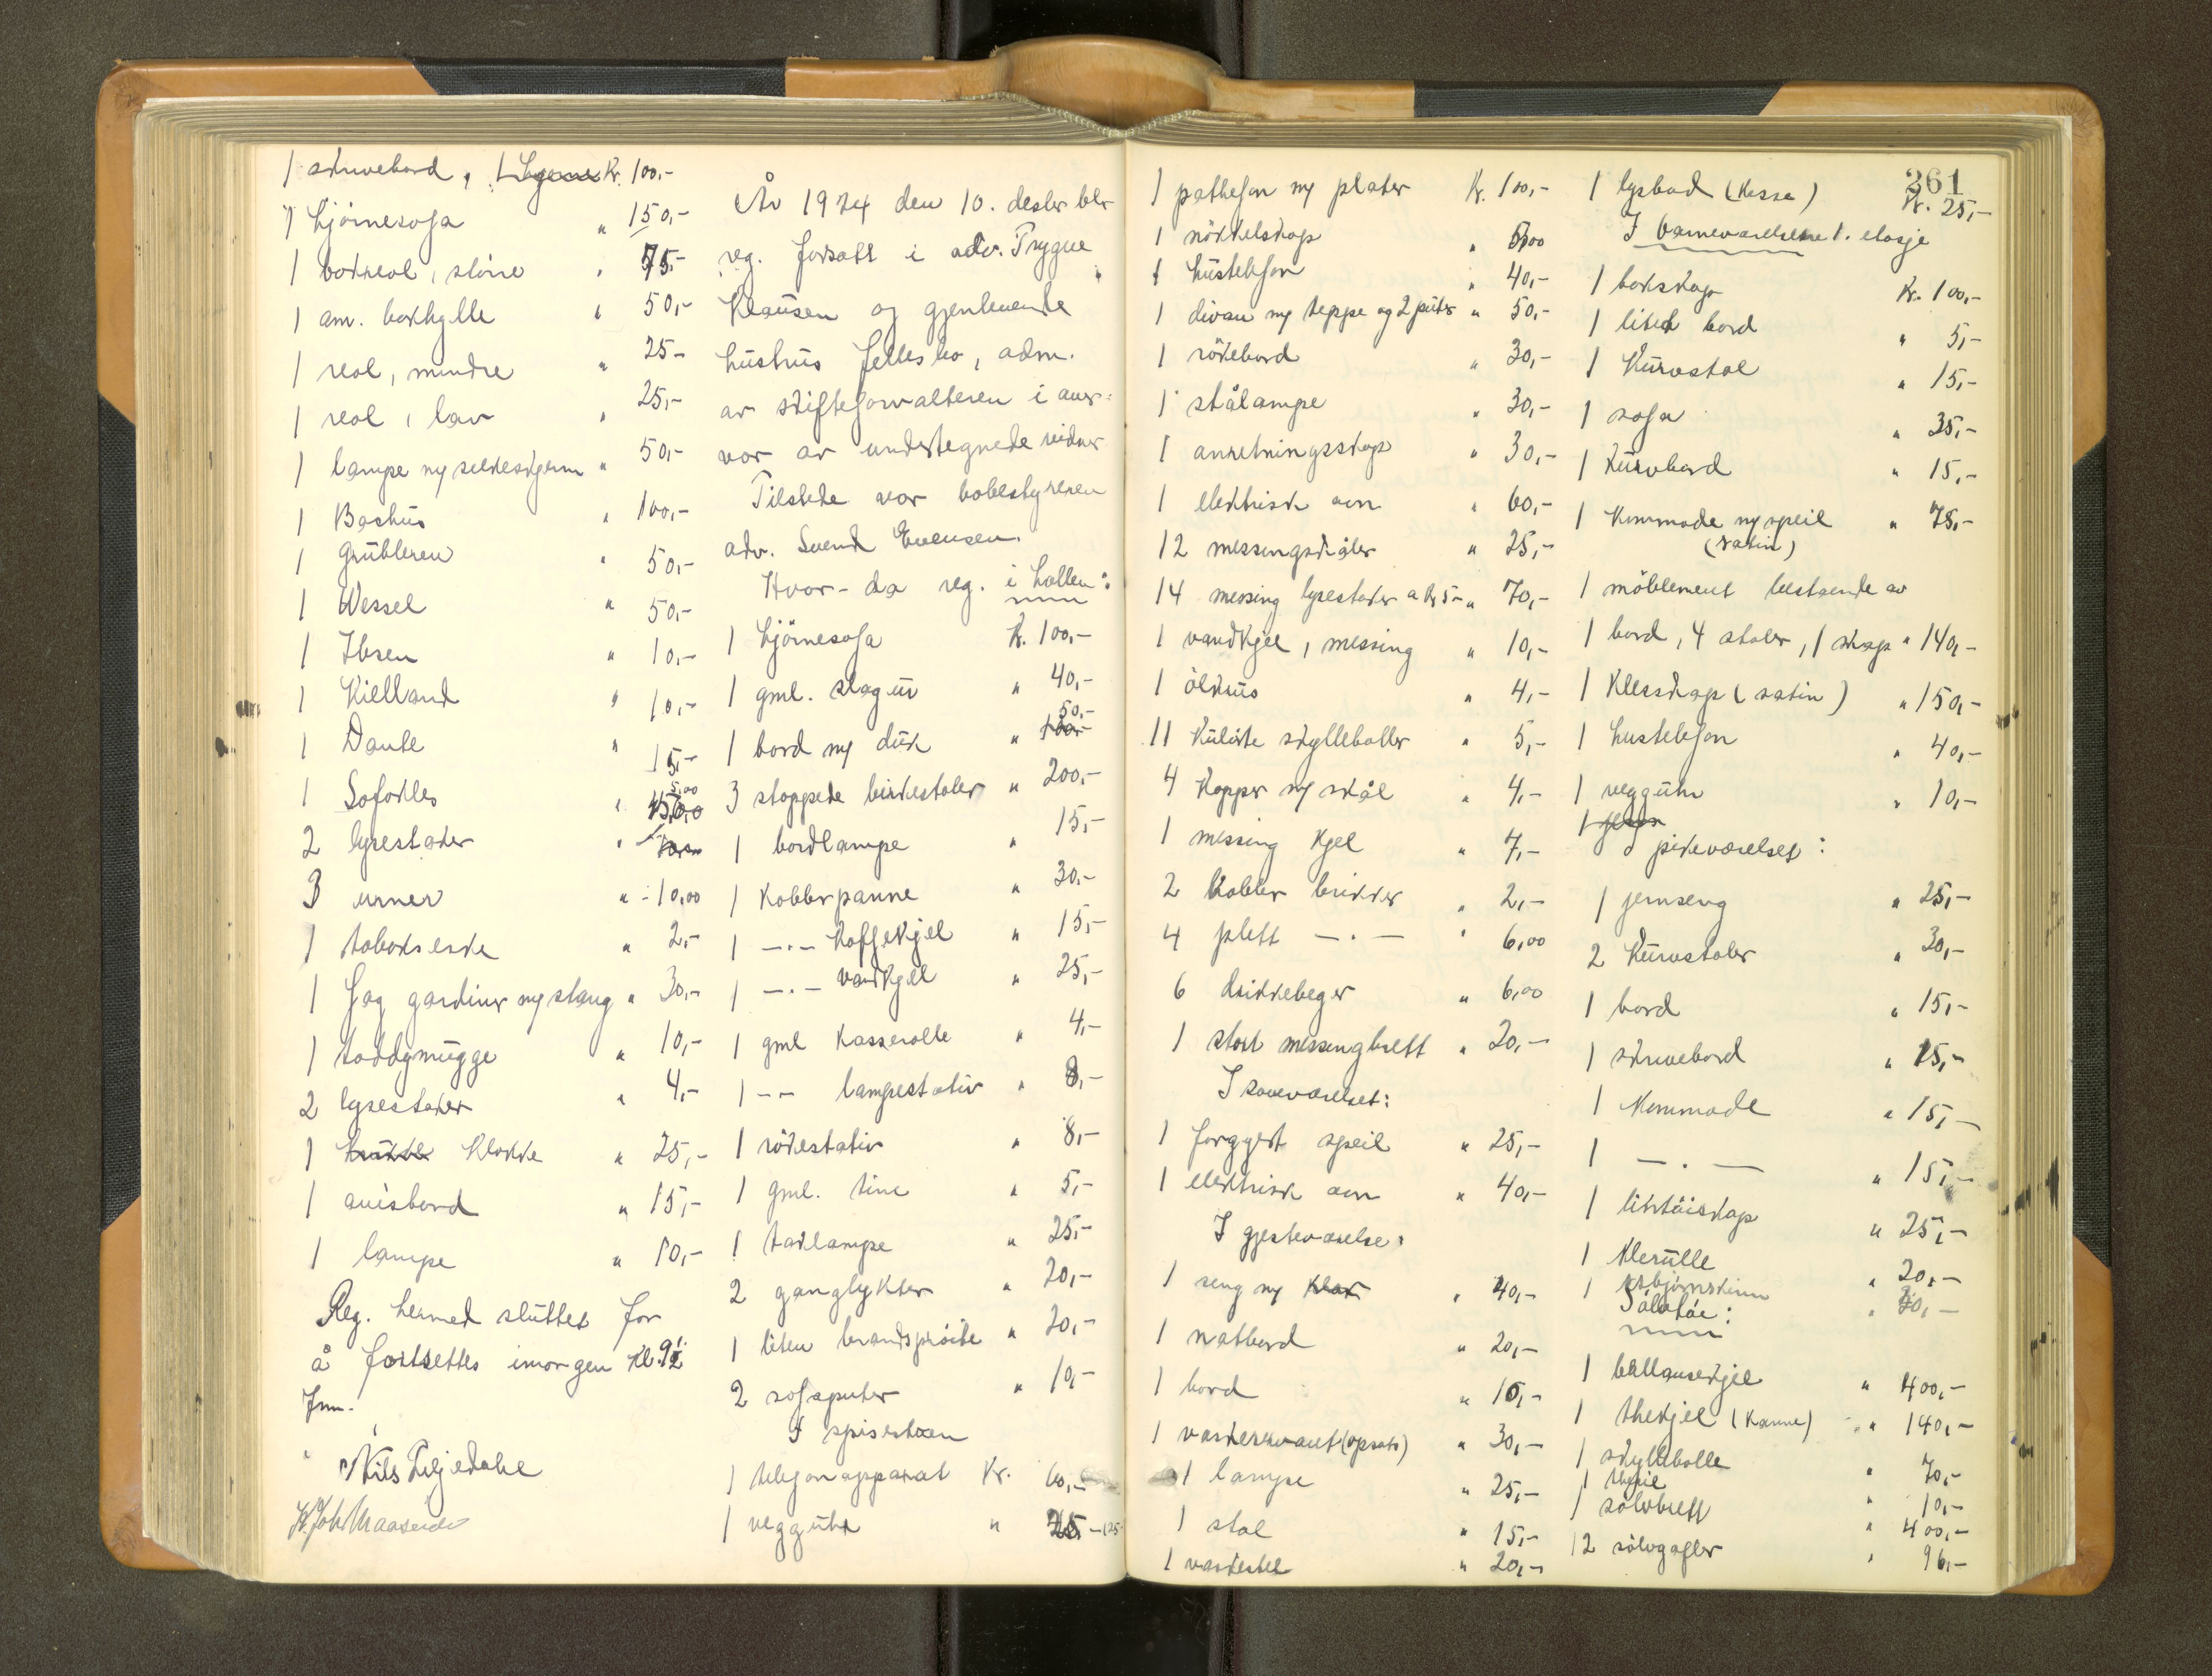 1 skrivebord, Kr. 100,-
1 hjörnesofa " 150,-
1 bokreol, större " 75,-
1 am. bokhylle " 50,-
1 reol, mindre " 25-
1 reol, lav " 25,-
1 lampe m/ silkeskjerm " 50,-
1 Bachus " 100,-
1 Grübleren " 50,-
1 Wessel " 50,-
1 Ibsen " 10,-
1 Kielland " 10,-
1 Dante " 15,-
1 Sofokles " 5,00
2 lysestaker "
3 urner " 10,00
1 tobakseske " 2,-
1 fag gardiner m/ stang " 30,-
1 toddymugge " 10,-
2 lysestaker " 4,-
1 klokke " 25,-
1 avisbord " 15,-
1 lampe " 10,-
Reg. hermed sluttet for
å fortsettes imorgen Kl. 9½
Fmm.
Nils Liljedahl
År 1924 den 10. desbr blev
reg. forsatt i adv. Trygve
Klausen og gjenlevende
hustrus fellesbo, adm.
av skifteforvalteren i
vor av undertegnede vidner
Tilstede var bobestyreren
adv. Svend Evensen.
Hvor-da reg. i hallen:
1 hjörnesofa Kr. 100,-
1 gml. slagur " 40,-
1 bord m/ duk " 50,-
3 stoppede birkestoler " 200,-
1 bordlampe " 15,-
1 Kobberpanne " 30,-
1 -"- Kaffekjel " 15,-
1 -"- vandkjel " 25,-
1 gml Kasserolle " 4,-
1 -- lampestativ " 8,-
1 rökestativ " 8,-
1 gml. tine " 5,-
1 taklampe " 25,-
2 ganglykter " 20,-
1 liten brandspröite " 20,-
2 sofaputer " 10,-
I spisestuen
1 telefonapparat Kr. 60,-
1 veggur " 25,-
261
1 pathefon m/ plater Kr. 100,-
1 nökkelskap "
1 hustelefon " 40,-
1 divan m/ teppe og 2 puter " 50,-
1 rökebord " 30,-
1 stålampe " 30,-
1 anretningsskap " 30,-
1 elektrisk ovn " 60,-
12 messingskåler " 25,-
14 messing lysestaker a Kr 5- " 70,-
1 vandkjel, messing " 10,-
1 ölkrus " 4,-
11 Kulörte skylleboller " 5,-
4 Kopper m/ skål " 4,-
1 messing Kjel " 7,-
2 Kobber brikker " 2,-
4 plett -"- " 6,00
6 drikkebeger " 6,00
1 stort messingbrett " 20,-
I soveværelset:
1 forgylt speil " 25,-
1 elektrisk ovn " 40,-
I gjesteværelse:
1 seng m/ " 40,-
1 natbord " 20,-
1 bord " 10,-
1 vaskeservant (opsats) " 30,-
1 lampe " 25,-
1 stol " 15,-
1 vaskestel " 20,-
1 lysbad (Kasse) Kr. 25,-
I barneværelsene 1. etasje
1 bokskap Kr. 100,-
1 litet bord " 5,-
1 Kurvstol " 15,-
1 sofa " 35,-
1 Kurvbord " 15,-
1 Kommode m/ speil " 75,-
(satin)
1 möblement bestaende av
1 bord, 4 stoler, 1 skap " 140,-
1 Klesskap (satin) " 150,-
1 hustelefon " 40,-
1 veggur " 10,-
I pikeværelset:
1 jernseng " 25,-
2 Kurvstoler " 30,-
1 bord " 15,-
1 skrivebord " 15,-
1 Kommode " 15,-
1 -"- " 15,-
1 lintöiskap " 25,-
1 Klerulle " 20,-
1 isbjörnskinn "
Sölvtöi:
1 bullanseskjel " 400,-
1 thekjel (Kanne) " 140,-
1 skyllebolle " 70,-
1 thesil " 10,-
1 sölvbrett " 400,-
12 sölvgafler " 96,-